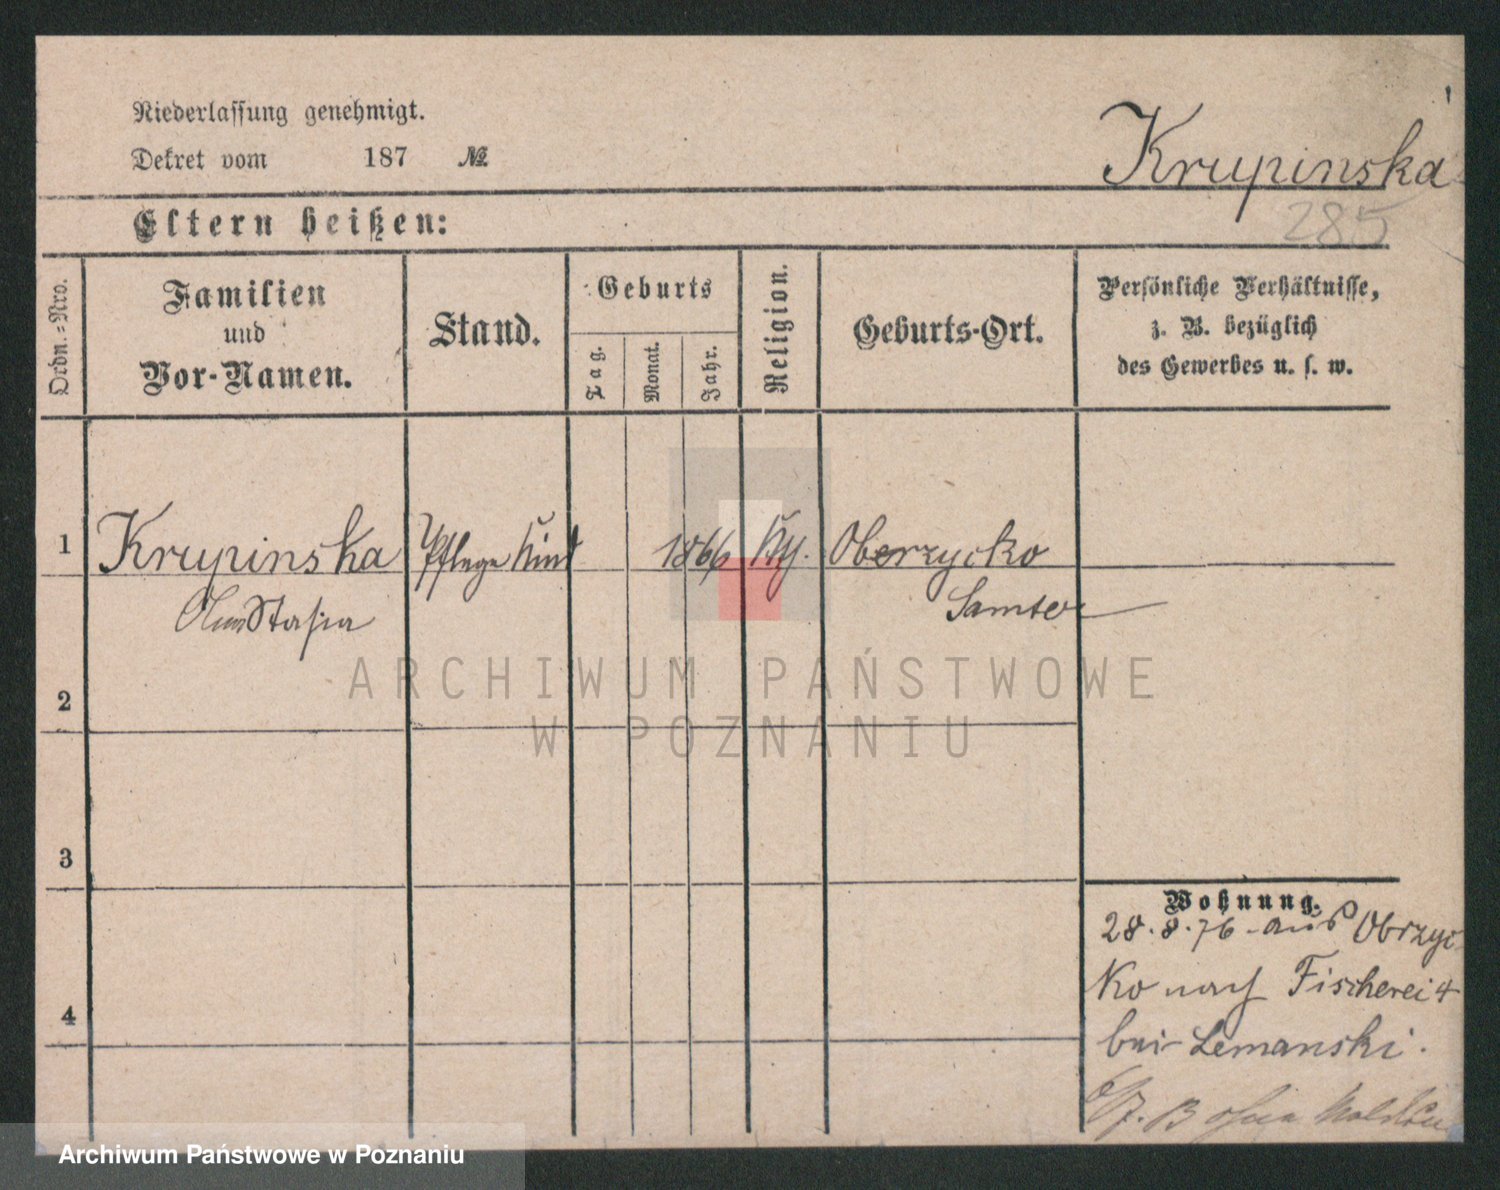 Niederlassung genehmigt.
Dekret vom 187 №
Krupinska
285
Eltern heißen:
Ordn.=Nro.
Familien
und
Vor-Namen.
Stand.
Geburts
Tag.
Monat.
Jahr.
Religion.
Geburts-Ort.
Persönliche Verhältnisse,
z. B. bezüglich
des Gewerbes u. s. w.
1 Krupinska Pflege Kind 1866 Oberzycko
Samter
2
3
4
Wohnung.
28.8.76 - aus Obrzyc
ko nach Fischerei 4
bei Lemanski.
ARCHIWUM PAŃSTWOWE
W POZNANIU
Archiwum Państwowe w Poznaniu